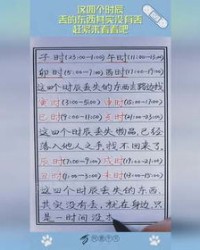 这四个时辰
丢的东西其实没有丢
赶紧来看看吧
子时(23:00-1:00)午时(11:00-13:00)
卯时(5:00-7:00)酉时(17:00-19:00)
这四个时辰丢失的东西去路边找
寅时(3:00-5:00)
这四个时辰丢失物品,已经
落入他人之手,找不回来了,
辰时(7:00-9:00)戌时(19:00-21:00)
丑时(1:00-3:00)未时(13:00-15:00)
这四个时辰丢失的东西,
其实没有丢,就在身边,只
是一时间没